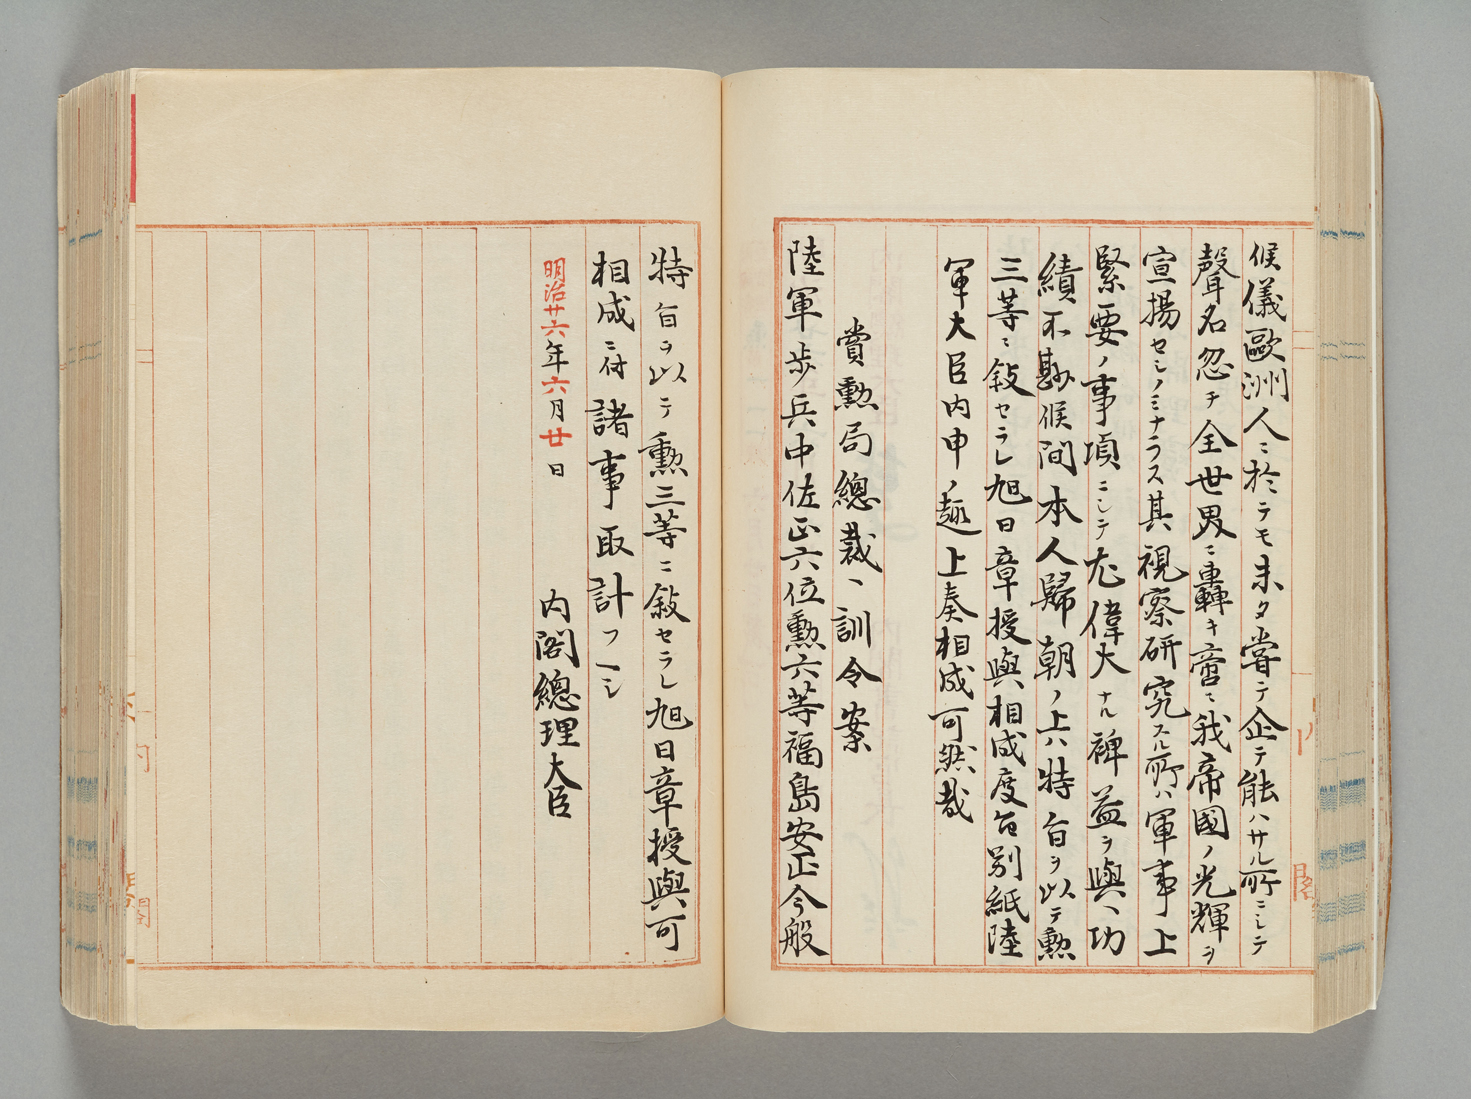 候儀歐洲人ニ於テモ未タ嘗テ企テ能ハサル所ニシテ
聲名忽チ全世界ニ轟キ啻ニ我帝國ノ光輝ヲ
宣揚セシノミナラス其視察研究スル所ハ軍事上
緊要ノ事項ニシテ尤偉大ナル裨益ヲ與ヘ功
績不尠候間本人歸朝ノ上ハ特旨ヲ以テ勲
三等ニ敍セラレ旭日章授與相成度旨別紙陸
軍大臣内申ノ趣上奏相成可然哉
賞勲局總裁ヘ訓令案
陸軍歩兵中佐正六位勲六等福島安正今般
特旨ヲ以テ勲三等ニ敍セラレ旭日章授與可
相成ニ付諸事取計フヘシ
明治廿六年六月廿日
内閣總理大臣
内閣